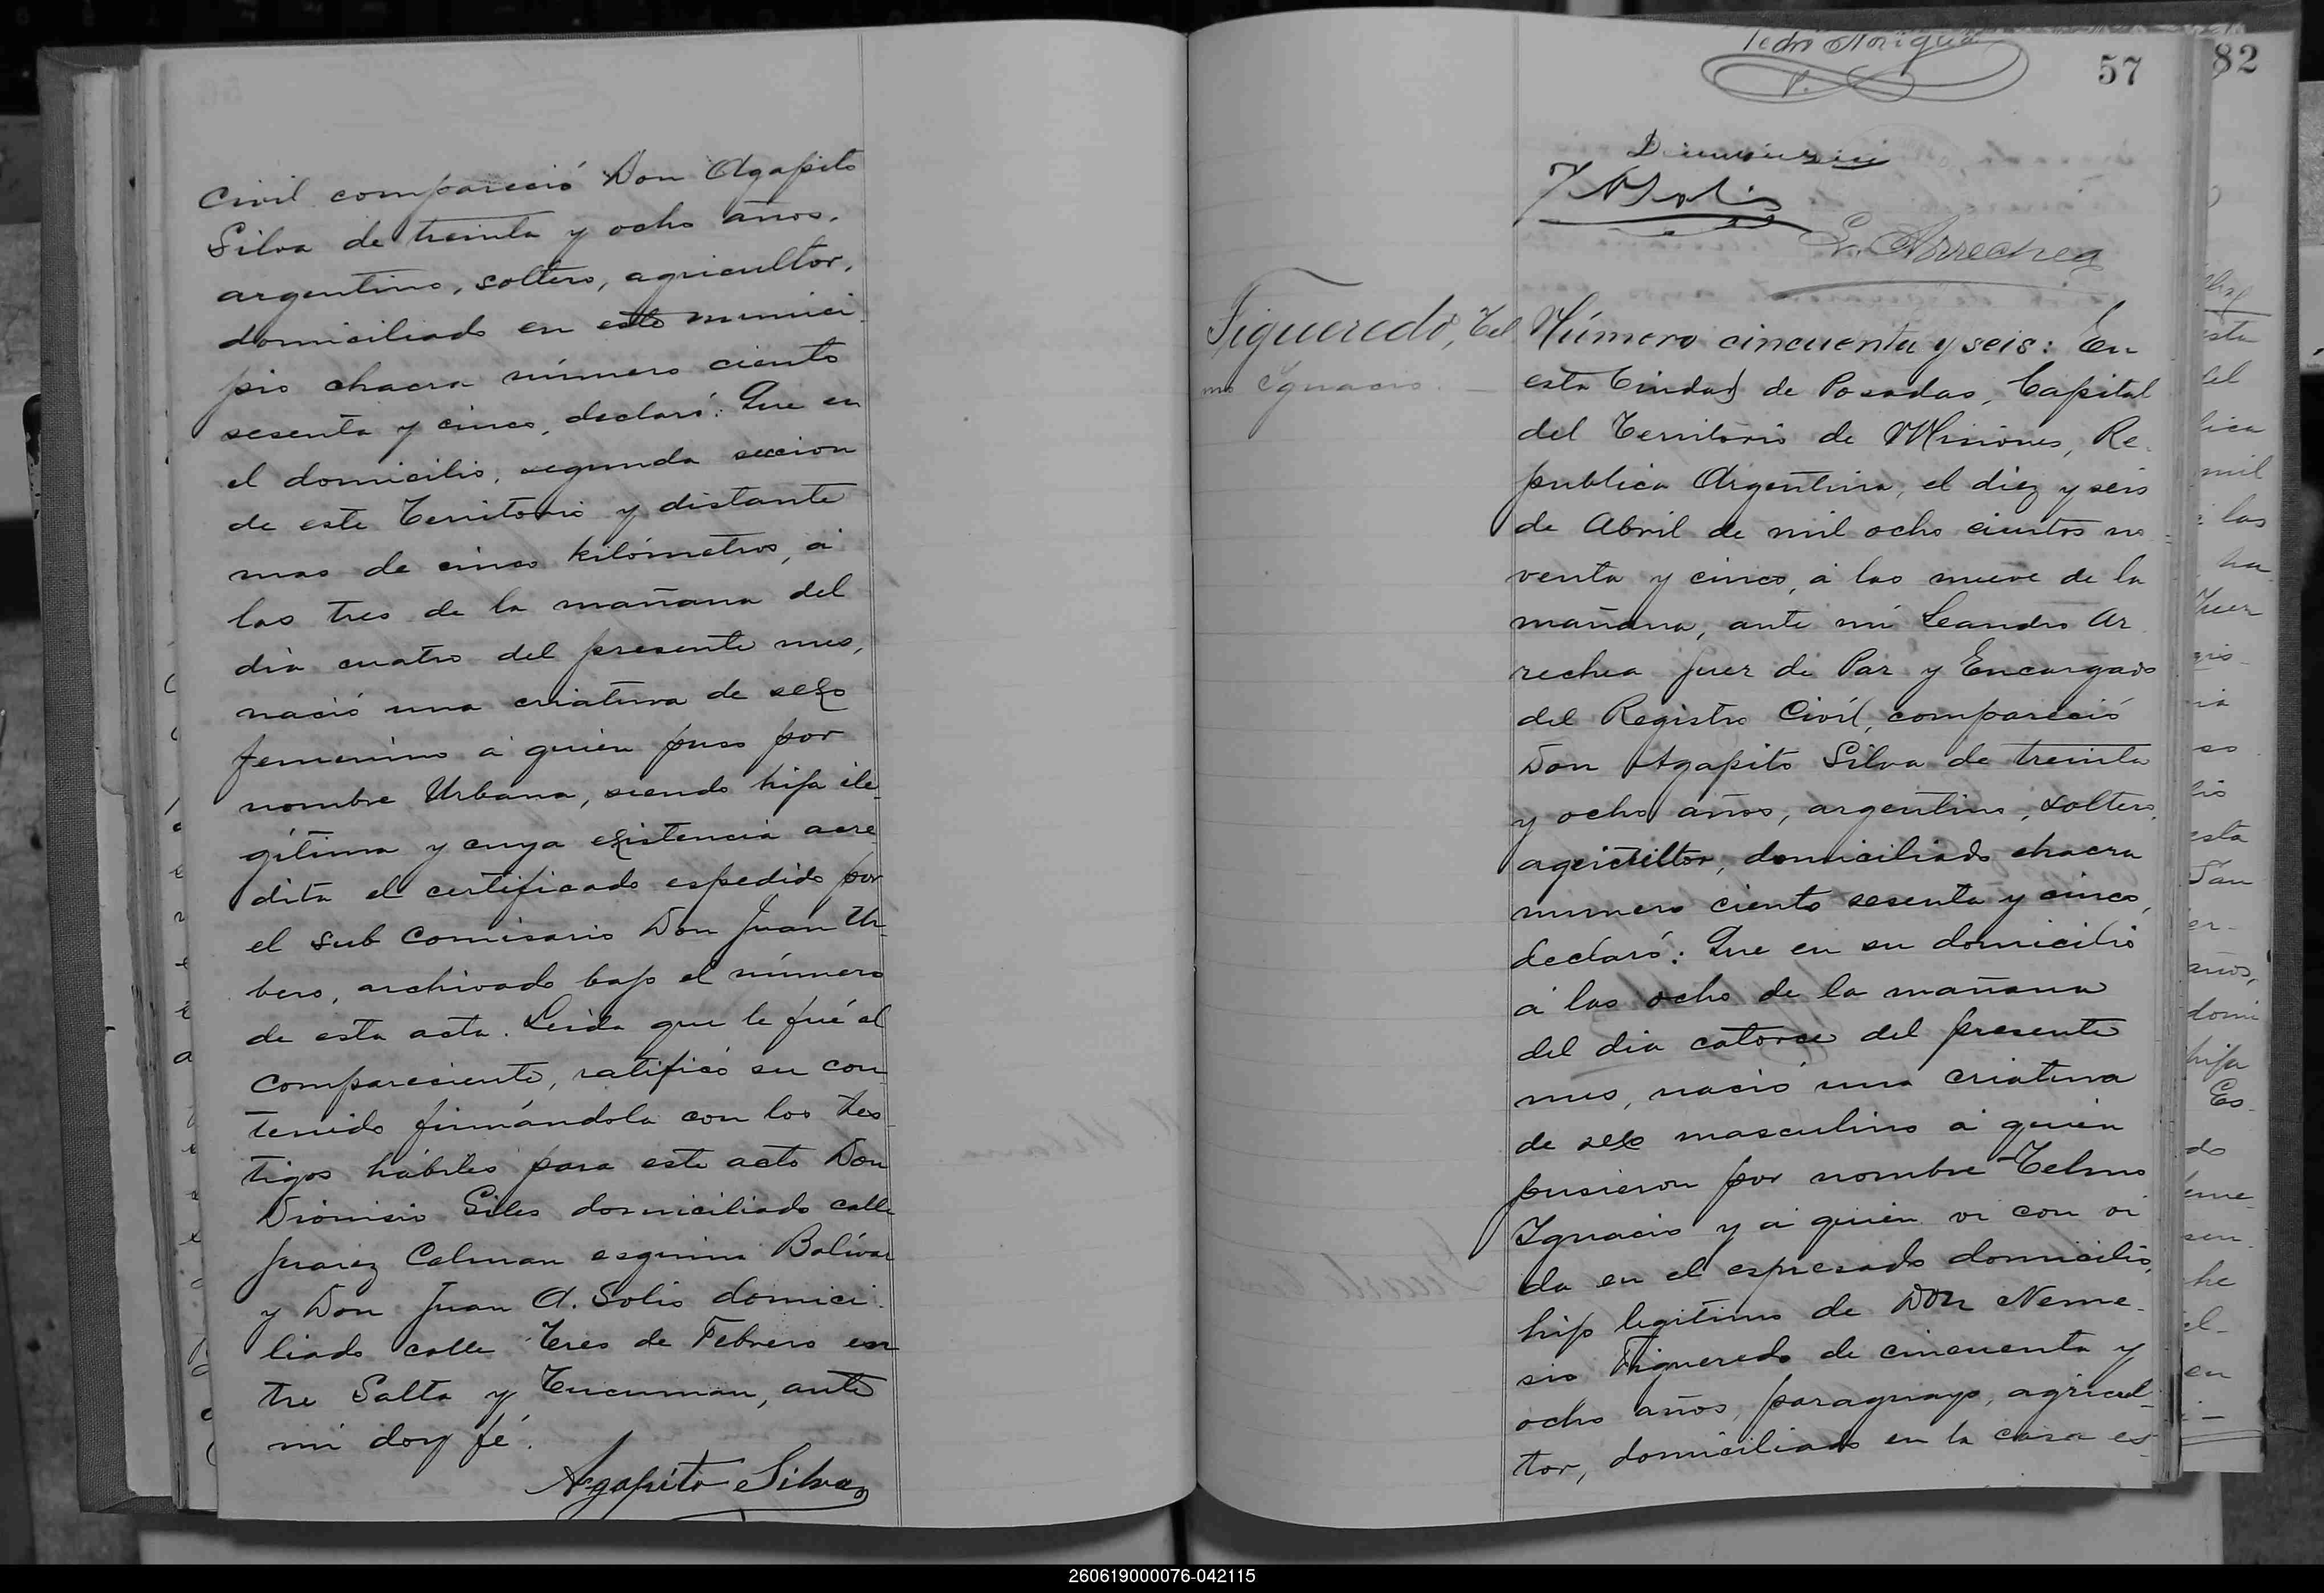 Civil compareció Don Agapito
Silva de treinta y ocho años,
argentino, soltero, agricultor,
domiciliado en este munici
pio chacra número ciento
sesenta y cinco, declaró: Que en
el domicilio, segunda seccion
de este Territorio y distante
mas de cinco kilómetros, á
las tres de la mañana del
dia cuatro del presente mes,
nació una criatura de sexo
femenino á quien puso por
nombre Urbana, siendo hija ile-
gítima y cuya existencia acre-
dita el certificado espedido por
el Sub Comisario Don Juan Ur-
bero, archivado bajo el número
de esta acta. Leida que le fué al
compareciente, ratificó su con
tenido firmándola con los tes-
tigos hábiles para este acto Don
Dionisio Giles domiciliado calle
Juarez Celman esquina Bolivar
y Don Juan A. Solis domici-
liado calle Tres de Febrero en
tre Salta y Tucuman, ante
mi doy fé.
Agapito Silva
57
82
L. Arrechea
Figueredo, Tel
mo Ignacio. —
Número cincuenta y seis: En
esta Ciudad de Posadas, Capital
del Territorio de Misiones, Re-
publica Argentina, el diez y seis
de Abril de mil ocho cientos no
venta y cinco, á las nueve de la
mañana, ante mi Leandro Ar
rechea Juez de Paz y Encargado
del Registro Civil, compareció
Don Agapito Silva de treinta
y ocho años, argentino, soltero,
agricultor, domiciliado chacra
numero ciento sesenta y cinco,
declaró: Que en su domicilio
á las ocho de la mañana
del dia catorce del presente
mes, nació una criatura
de sexo masculino á quien
pusieron por nombre Telmo
Ignacio y á quien vi con vi
da en el espresado domicilio,
hijo legitimo de Don Neme-
sio Figueredo de cincuenta y
ocho años, paraguayo, agricul-
tor, domiciliado en la casa es-
260619000076-042115